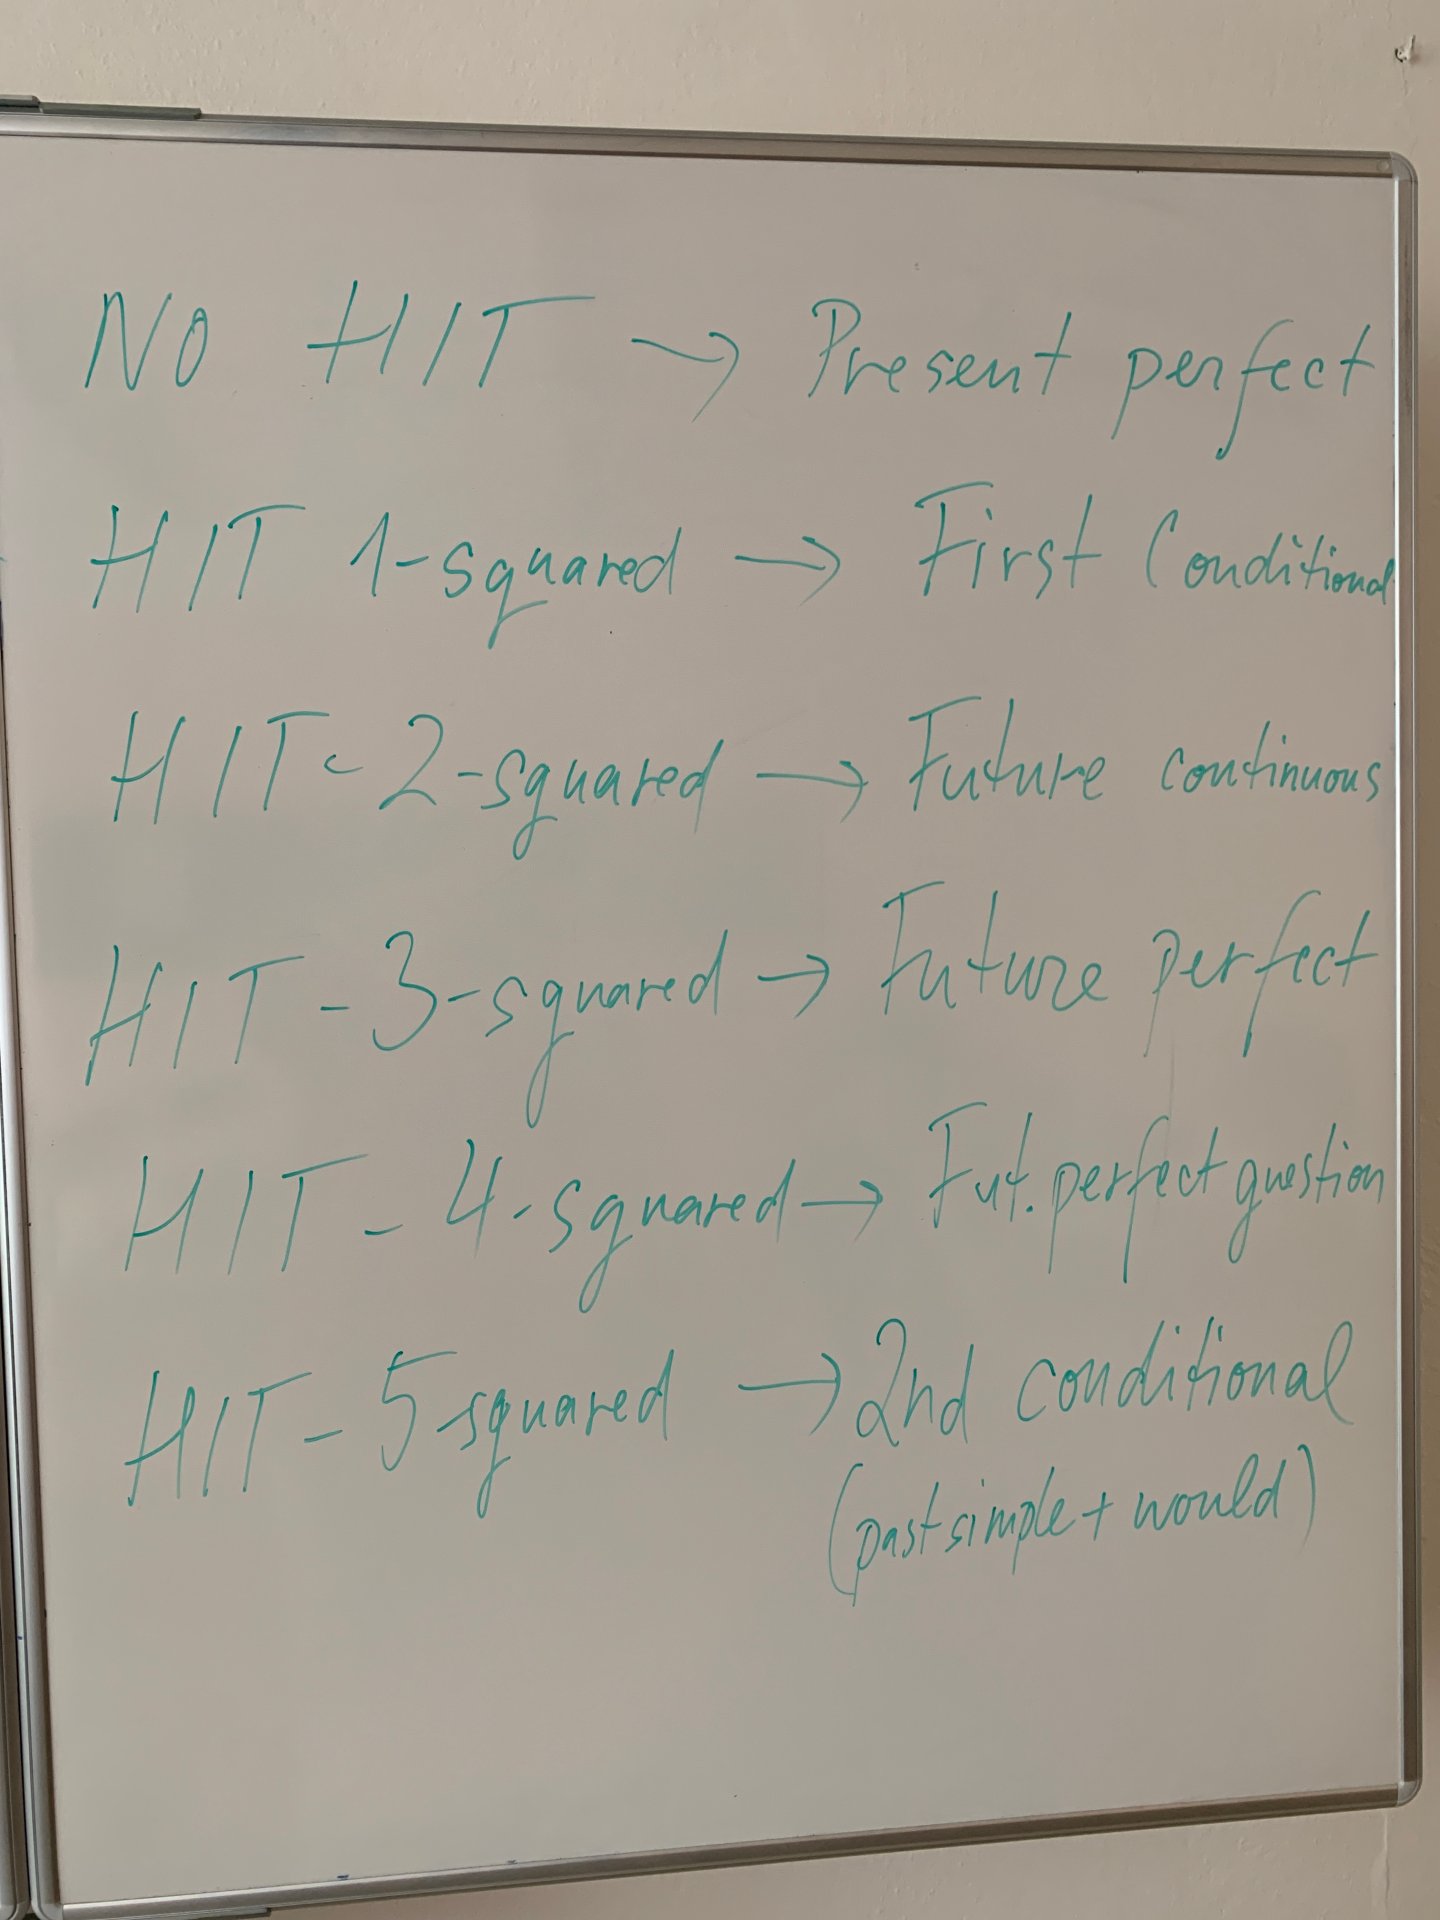 NO HIT → Present perfect
HIT 1-squared → First Conditional
HIT - 2-squared → Future continuous
HIT - 3-squared → Future perfect
HIT - 4-squared → Fut. perfect question
HIT - 5-squared → 2nd conditional
(past simple + would)